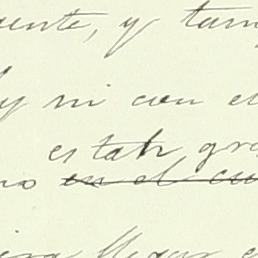 uente, y tam
y ni con el
es tah gra
no en el cu
llegar